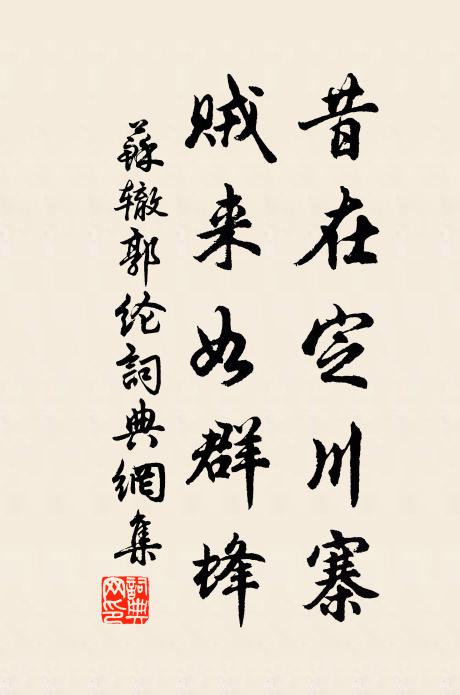 昔在定川寨
贼来如群蜂
蘇辙郭纶詞典網集
詞典网印